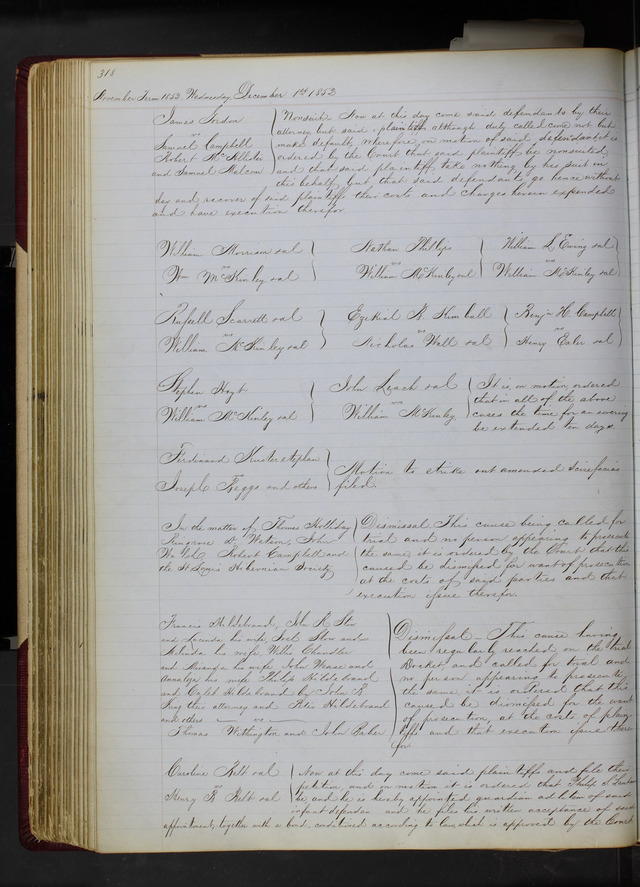 318
November Term 1852 Wednesday December 1st 1852
James Gordon
vs
Samuel Campbell
Robert McAllister
and Samuel Malcom
Nonsuit Now at this day come said defendants by their
attorney but said plaintiffs although duly called come not but
make default, wherefore, on motion of said defendants it is
ordered by the Court that said plaintiff be nonsuited,
and that said plaintiff take nothing by his suit in
this behalf, but that said defendants go hence without
day and recover of said plaintiffs their costs and charges herein expended
and have execution therefor
William Morrison et al
vs
Wm McKinley et al
Nathan Phillips
vs
William McKinley et al
William L Ewing et al
vs
William McKinley et al
Russell Scarritt et al
vs
William McKinley et al
Ezekial R Kimball
vs
Nicholas Wall et al
Benjn H. Campbell
vs
Henry Ealer et al
Stephen Hoyt
vs
William McKinley et al
John Leach et al
vs
William McKinley
It is on motion ordered
that in all of the above
cases the time for answering
be extended ten days
Ferdinand
vs
Joseph Beggs and others
Motion to strike out amended scirefacias
filed
In the matter of, Thomas Holliday
Watson, John
Robert Campbell and
the St Louis Hibernian Society
Dismissal This cause being called for
trial and no person appearing to prosecute
the same, it is ordered by the Court that this
caused be dismissed for want of prosecution
at the costs of said parties and that
execution issue therefor.
Francis Hildebrand, John R Stow
and Lucinda his wife, Joel Stow and
Malinda his wife Willis Chandler
and his wife John Wease and
his wife Philip Hildebrand
and Caleb Hildebrand by John R
King their attorney and Peter Hildebrand
and others
vs
Thomas Withington and John Baker
Dismissal – This cause having
been regularly reached on the trial
Docket and called for trial and
no person appearing to prosecute
the same it is ordered that this
caused be dismissed for the want
of prosecution, at the costs of plain
tiffs and that execution issue there
for
Caroline Belt et al
vs
Henry B Belt et al
Now at this day come said plaintiffs and file their
petition, and on motion it is ordered that Philip S
be and he is hereby appointed guardian ad litem of said
infant defendan and he files his written acceptance of such
appointment, together with a bond, conditioned according to law, which is approved by the Court